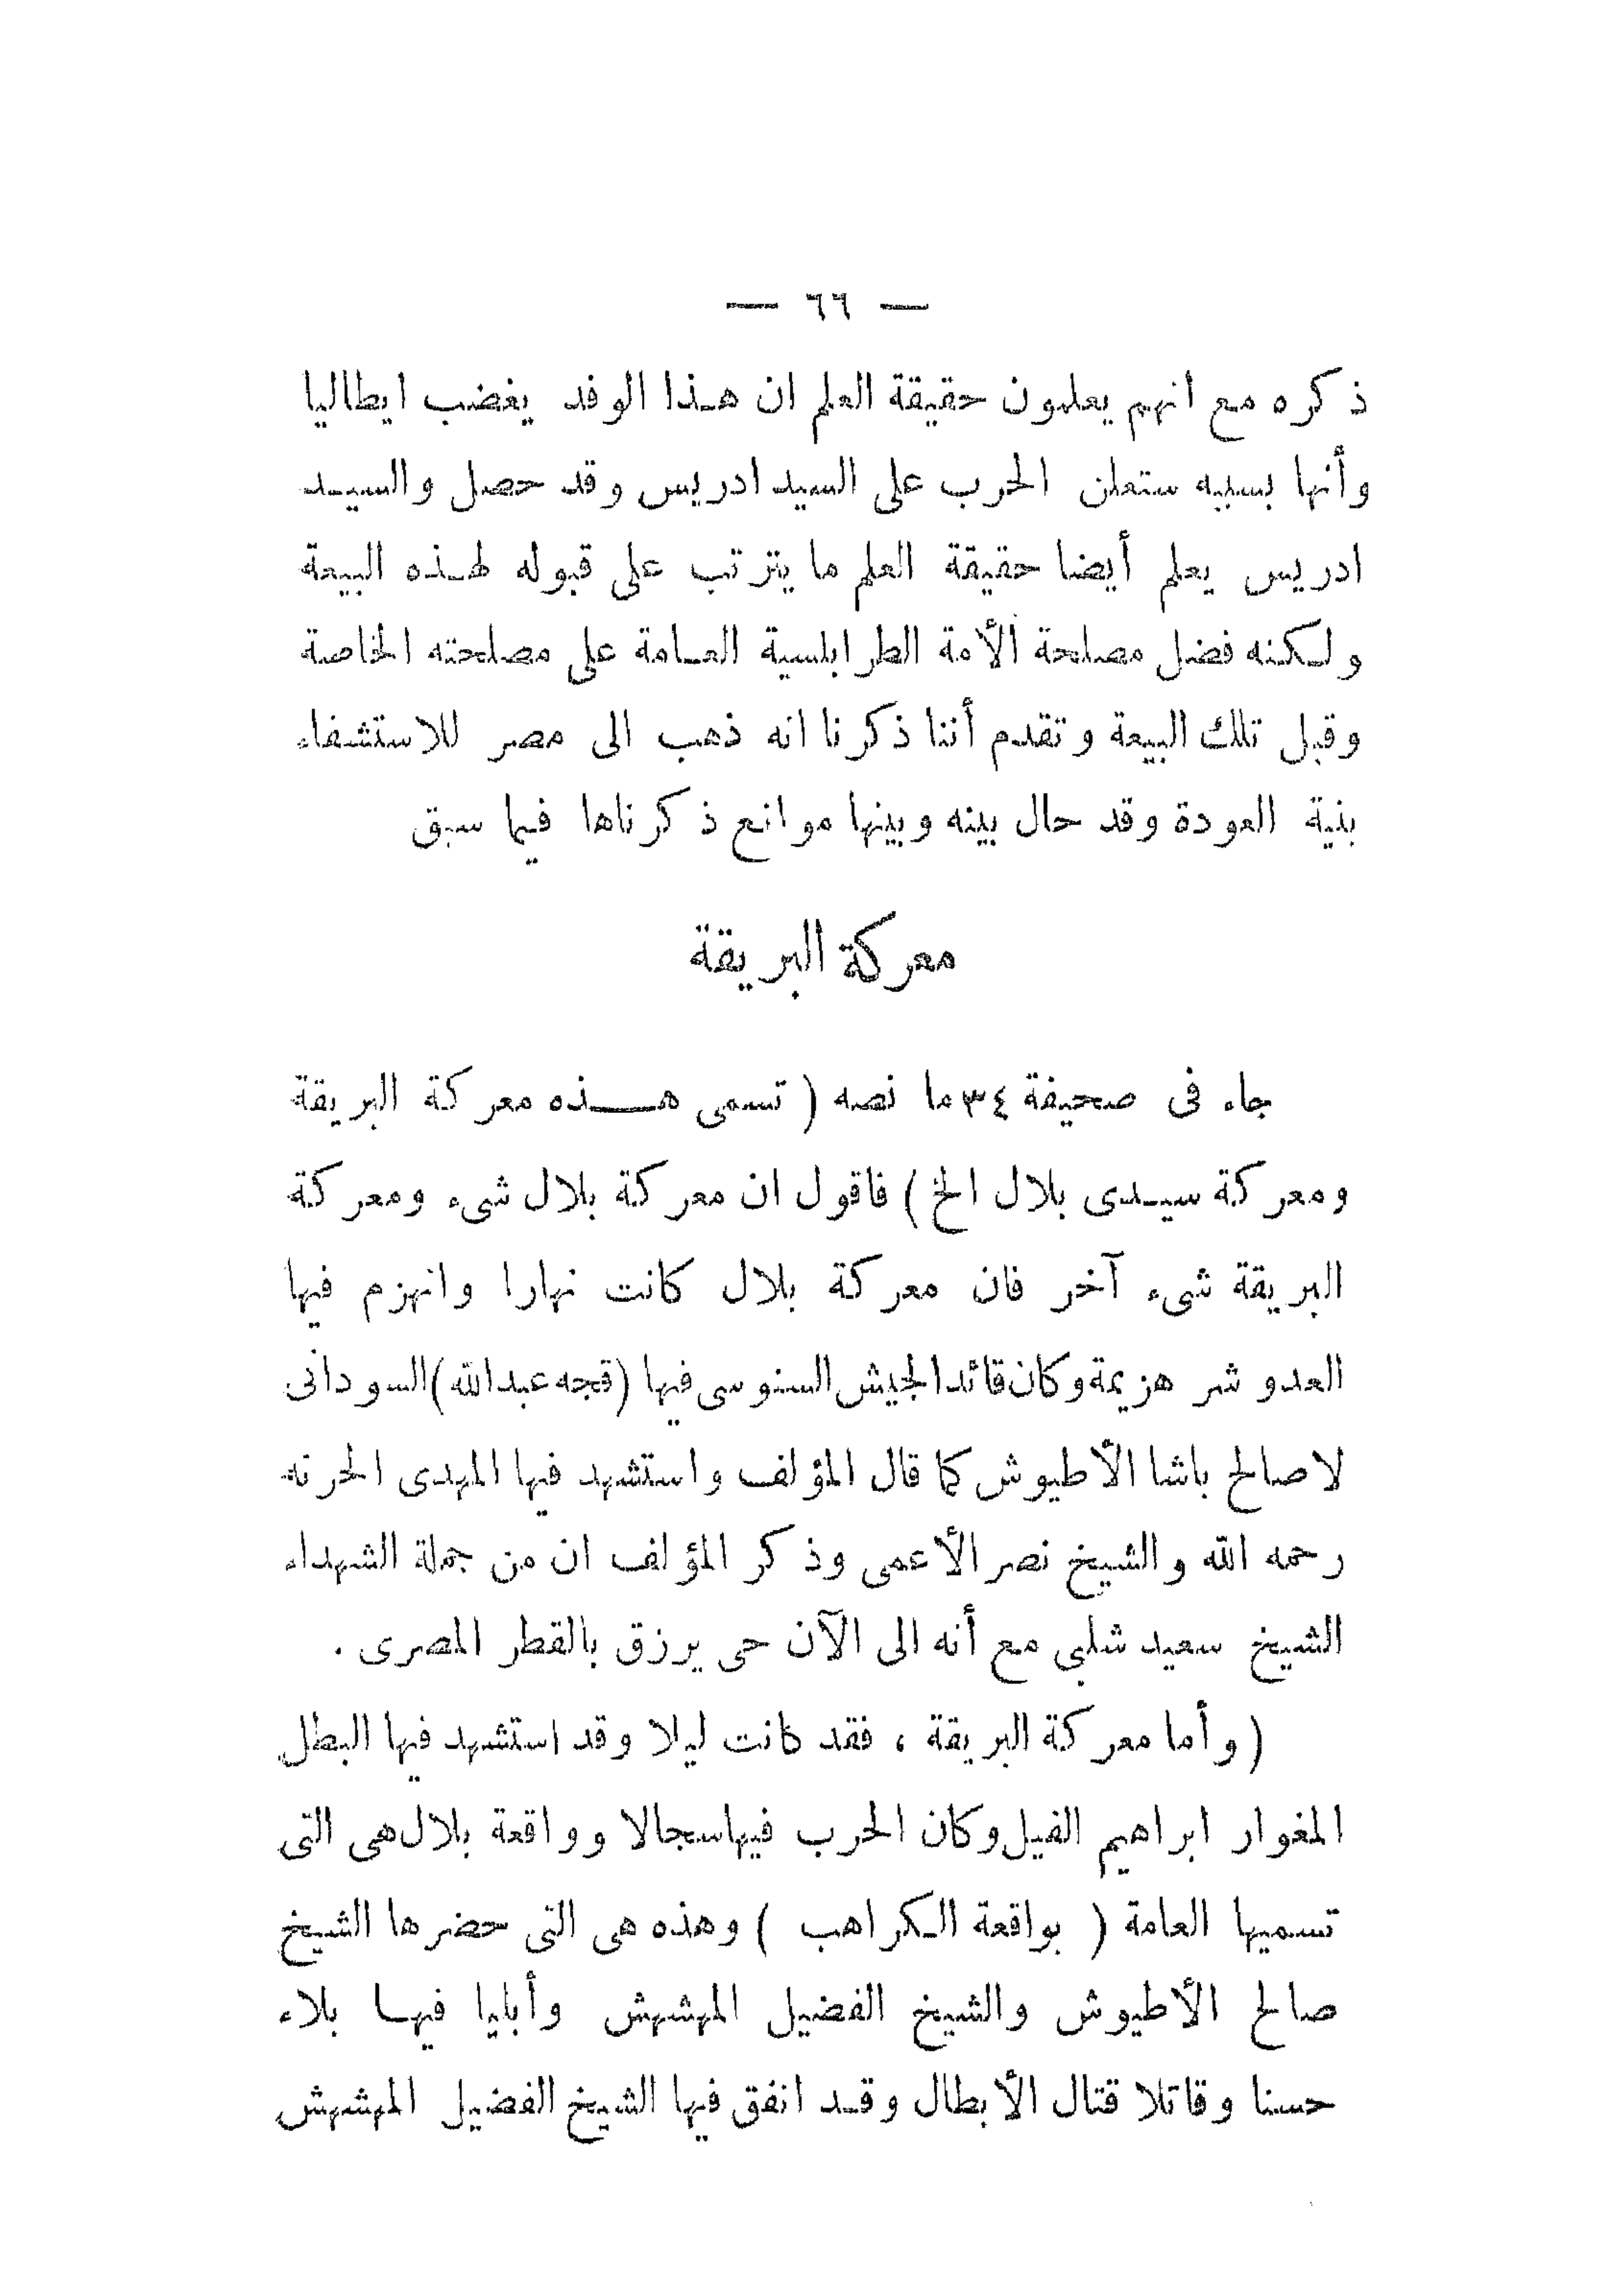 — ٦٦ —
ذكره مع انهم يعلمون حقيقة العلم ان هذا الوفد يغضب ايطاليا
وأنها بسببه ستعلن الحرب على السيد ادريس وقد حصل والسيد
ادريس يعلم أيضا حقيقة العلم ما يترتب على قبوله لهذه البيعة
ولكنه فضل مصلحة الأمة الطرابلسية العامة على مصلحته الخاصة
وقبل تلك البيعة وتقدم أننا ذكرنا انه ذهب الى مصر للاستشفاء
بنية العودة وقد حال بينه وبينها موانع ذكرناها فيما سبق
معركة البريقة
جاء فى صحيفة ٣٤ ما نصه ( تسمى هذه معركة البريقة
ومعركة سيدى بلال الخ ) فاقول ان معركة بلال شىء ومعركة
البريقة شىء آخر فان معركة بلال كانت نهارا وانهزم فيها
العدو شر هزيمة وكان قائد الجيش السنوسى فيها (قجه عبدالله) السودانى
لا صالح باشا الأطيوش كما قال المؤلف واستشهد فيها المهدى الحرنه
رحمه الله والشيخ نصر الأعمى وذكر المؤلف ان من جملة الشهداء
الشيخ سعيد شلبى مع أنه الى الآن حى يرزق بالقطر المصرى .
( وأما معركة البريقة ، فقد كانت ليلا وقد استشهد فيها البطل
المغوار ابراهيم الفيل وكان الحرب فيها سجالا وواقعة بلال هى التى
تسميها العامة ( بواقعة الكراهب ) وهذه هى التى حضرها الشيخ
صالح الأطيوش والشيخ الفضيل المهشهش وأبليا فيها بلاء
حسنا وقاتلا قتال الأبطال وقد انفق فيها الشيخ الفضيل المهشهش